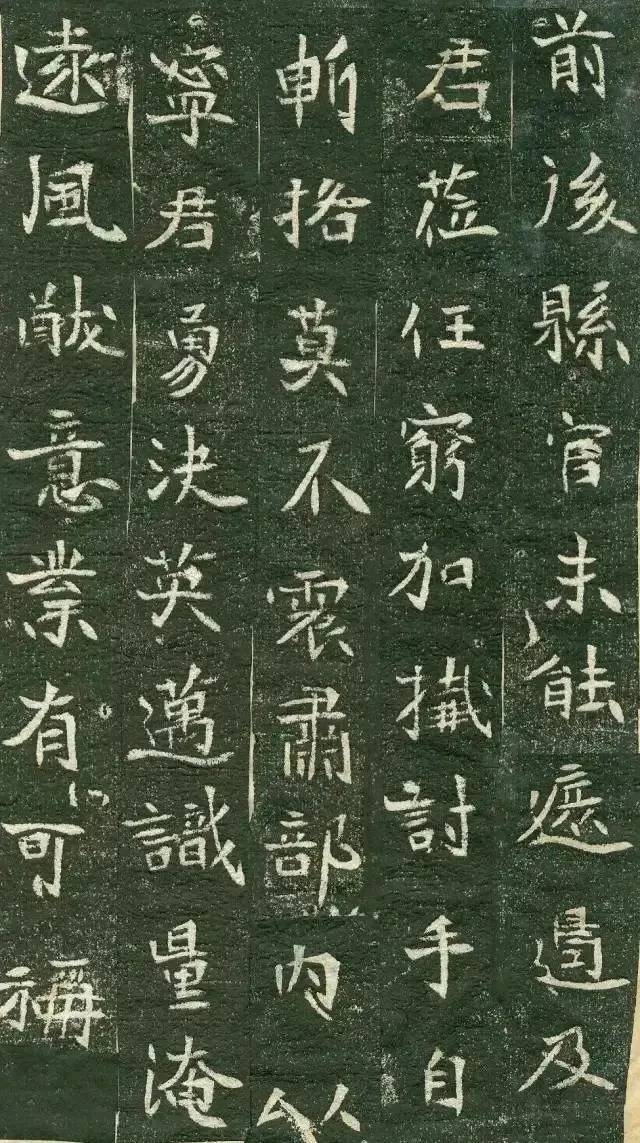 前後縣官未能遮遏及
君莅任窮加討手自
斬挌莫不震肅部内以
寧君勇決英邁識量淹
遠風猷意業有可稱